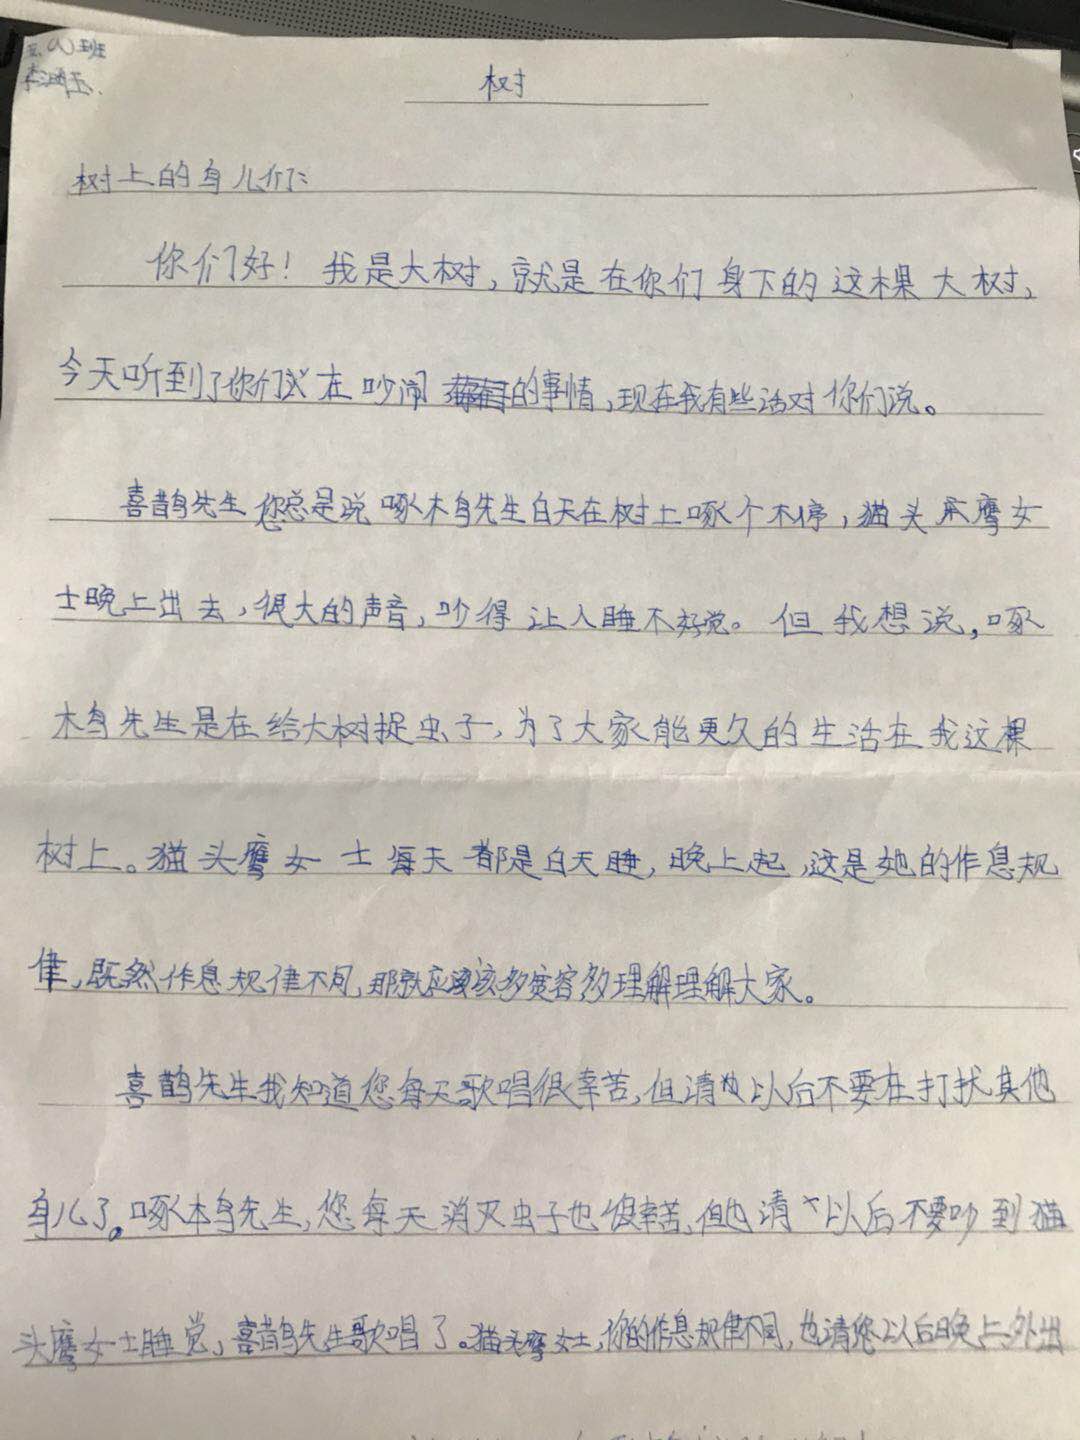 五（）班
树
树上的鸟儿们：
你们好！我是大树，就是在你们身下的这棵大树，
今天听到了你们又在吵闹的事情，现在我有些话对你们说。
喜鹊先生您总是说啄木鸟先生白天在树上啄个不停，猫头鹰女
士晚上出去，很大的声音，吵得让人睡不好觉。但我想说，啄
木鸟先生是在给大树捉虫子，为了大家能更久的生活在我这棵
树上。猫头鹰女士每天都是白天睡，晚上起，这是她的作息规
律，既然作息规律不同，那就应该多宽容多理解理解大家。
喜鹊先生我知道您每天歌唱很幸苦，但请也以后不要在打扰其他
鸟儿了。啄木鸟先生，您每天消灭虫子也很幸苦，但也请以后不要吵到猫
头鹰女士睡觉，喜鹊先生歌唱了。猫头鹰女士，你的作息规律不同，也请您以后晚上外出